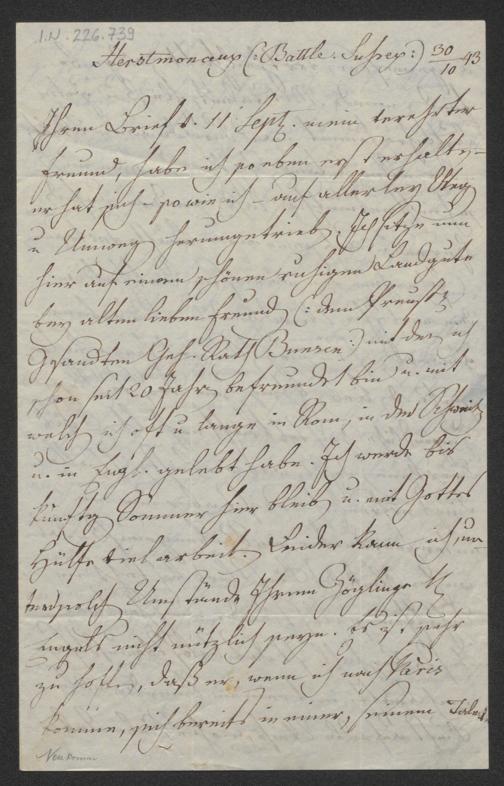 I.N. 226.739
Herstmonceux (: Battle. Sussex:) 30/10 43
Ihren Brief v. 11 Sept. mein verehrter
Freund, habe ich so eben erst erhalten
er hat sich – so wie ich – auf allerley Weg
u Umweg herumgetrieb. Ich sitze nun
hier auf einem schönen ruhigen Landgute
bey alten lieben Freund (: dem Preuß.
Gesandten Geh. Rath Bunsen:) mit dem ich
schon seit 20 Jahr befreundet bin u. mit
welch ich oft u lange in Rom, in der Schweiz
u. in Engl. gelebt habe. Ich werde bis
künftg Sommer hier bleib u. mit Gottes
Hülfe viel arbeit. Leider kann ich un
ter solch Umstände Ihrem Zöglinge
nicht nützlich seyn. Es ist sehr
zu hoffen, daß er, wenn ich nach Paris
komme, sich bereits in einer, seinem Talent
Neukomm